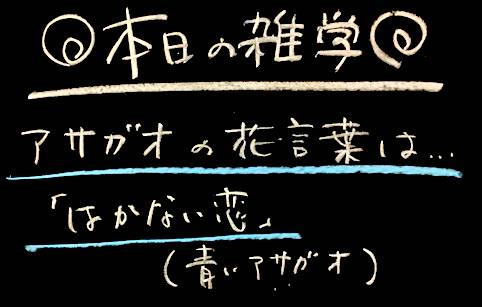 本日の雑学
アサガオの花言葉は...
「はかない恋」
(青いアサガオ)